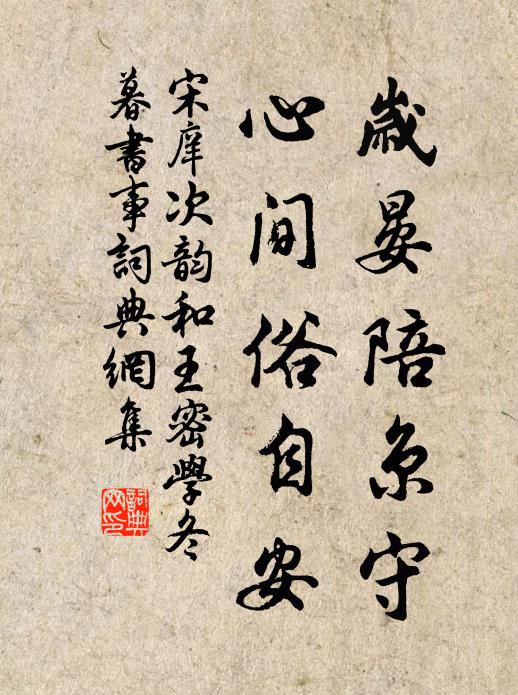 歲晏陪京守
心閒俗自安
宋庠次韵和王密學冬
暮書事詞典網集
詞典
网印